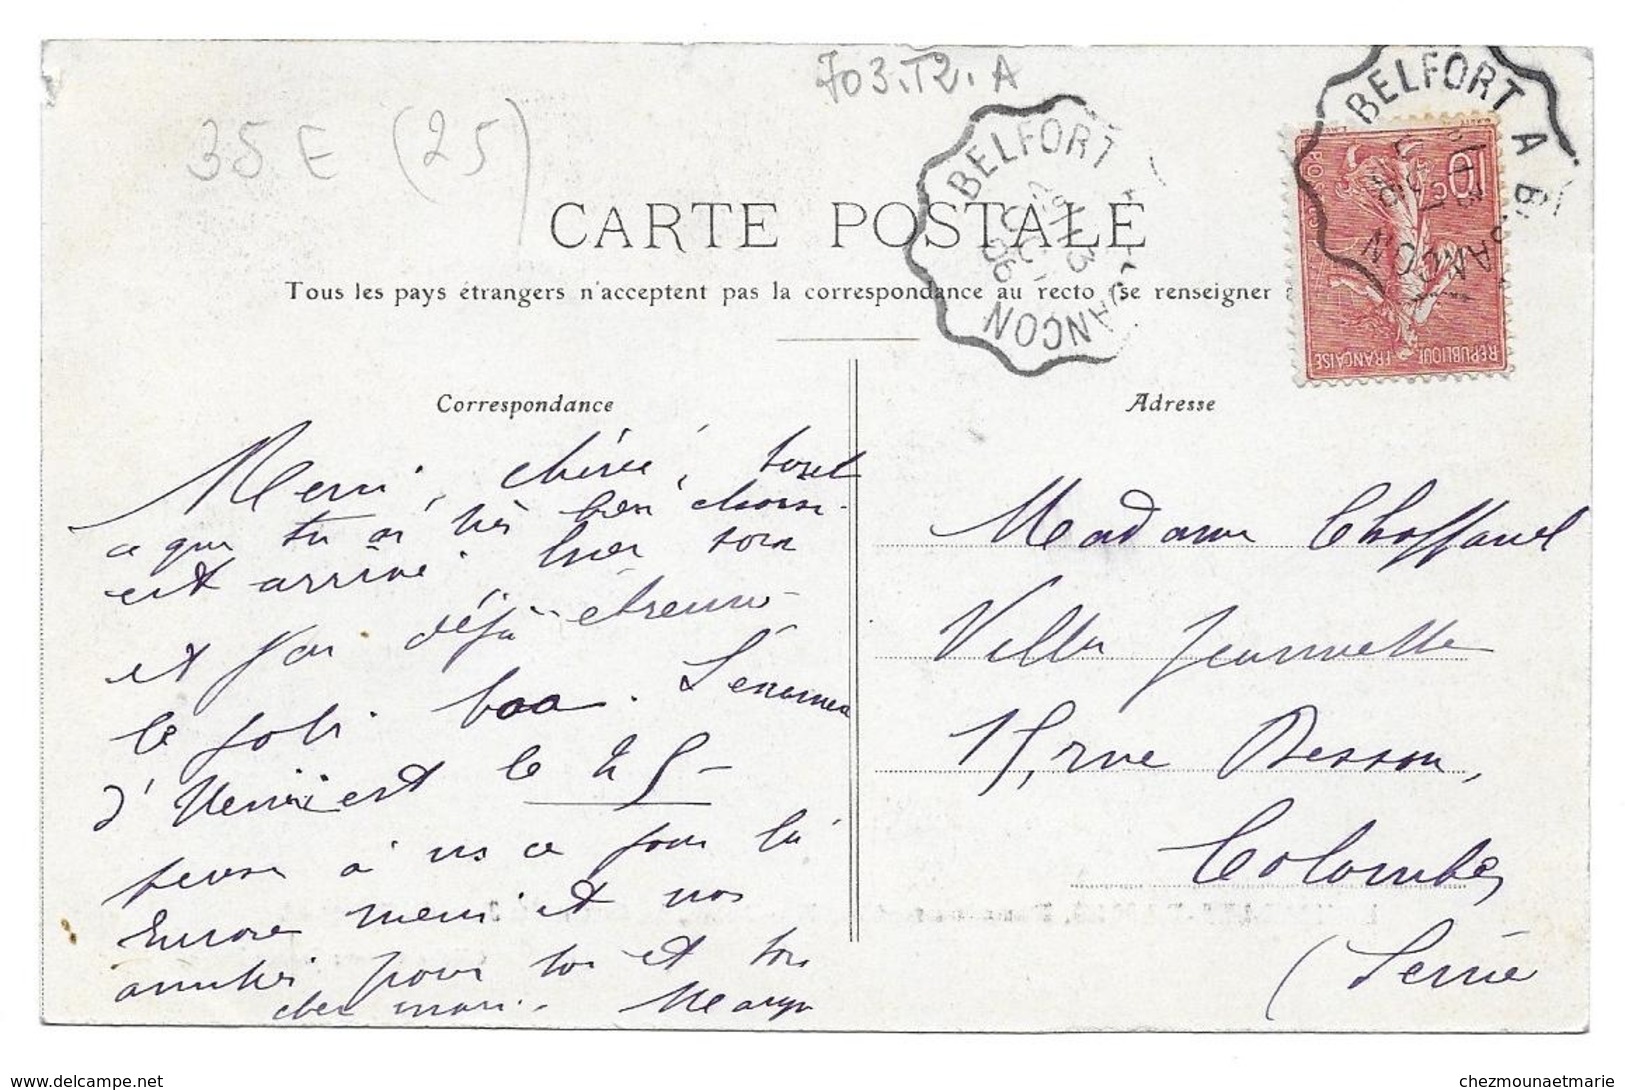 703.T2.A
35 E (25)
BELFORT
29
OCT
06
BELFORT A BESANÇON
10c
POSTES
REPUBLIQUE FRANÇAISE
CARTE POSTALE
Tous les pays étrangers n'acceptent pas la correspondance au recto (se renseigner à
Correspondance
Adresse
Merci, chérie, tout
ce que tu as très bien choisi
est arrivé hier soir
et j'ai déjà étrenné
le joli boa. L'examen
d'Henri est le 25 –
pense à ns ce jour là
Encore merci et nos
amitiés pour toi et ton
cher mari.
Madame Choffauel
Villa Jeannette
15, rue Besson,
Colombes
(Seine
www.delcampe.net
chezmounaetmarie